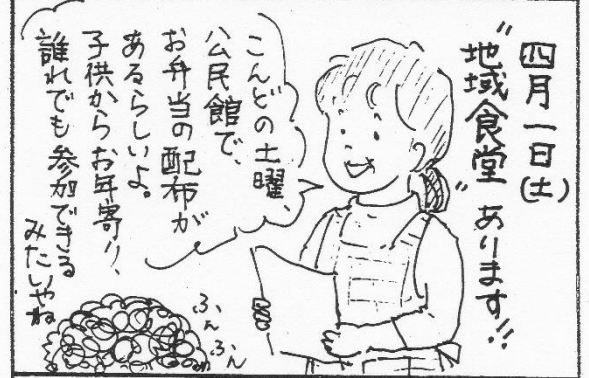 四月一日(土)
"地域食堂"あります!!
こんどの土曜、
公民館で、
お弁当の配布が
あるらしいよ。
子供からお年寄り、
誰れでも参加できる
みたいやね
ふんふん